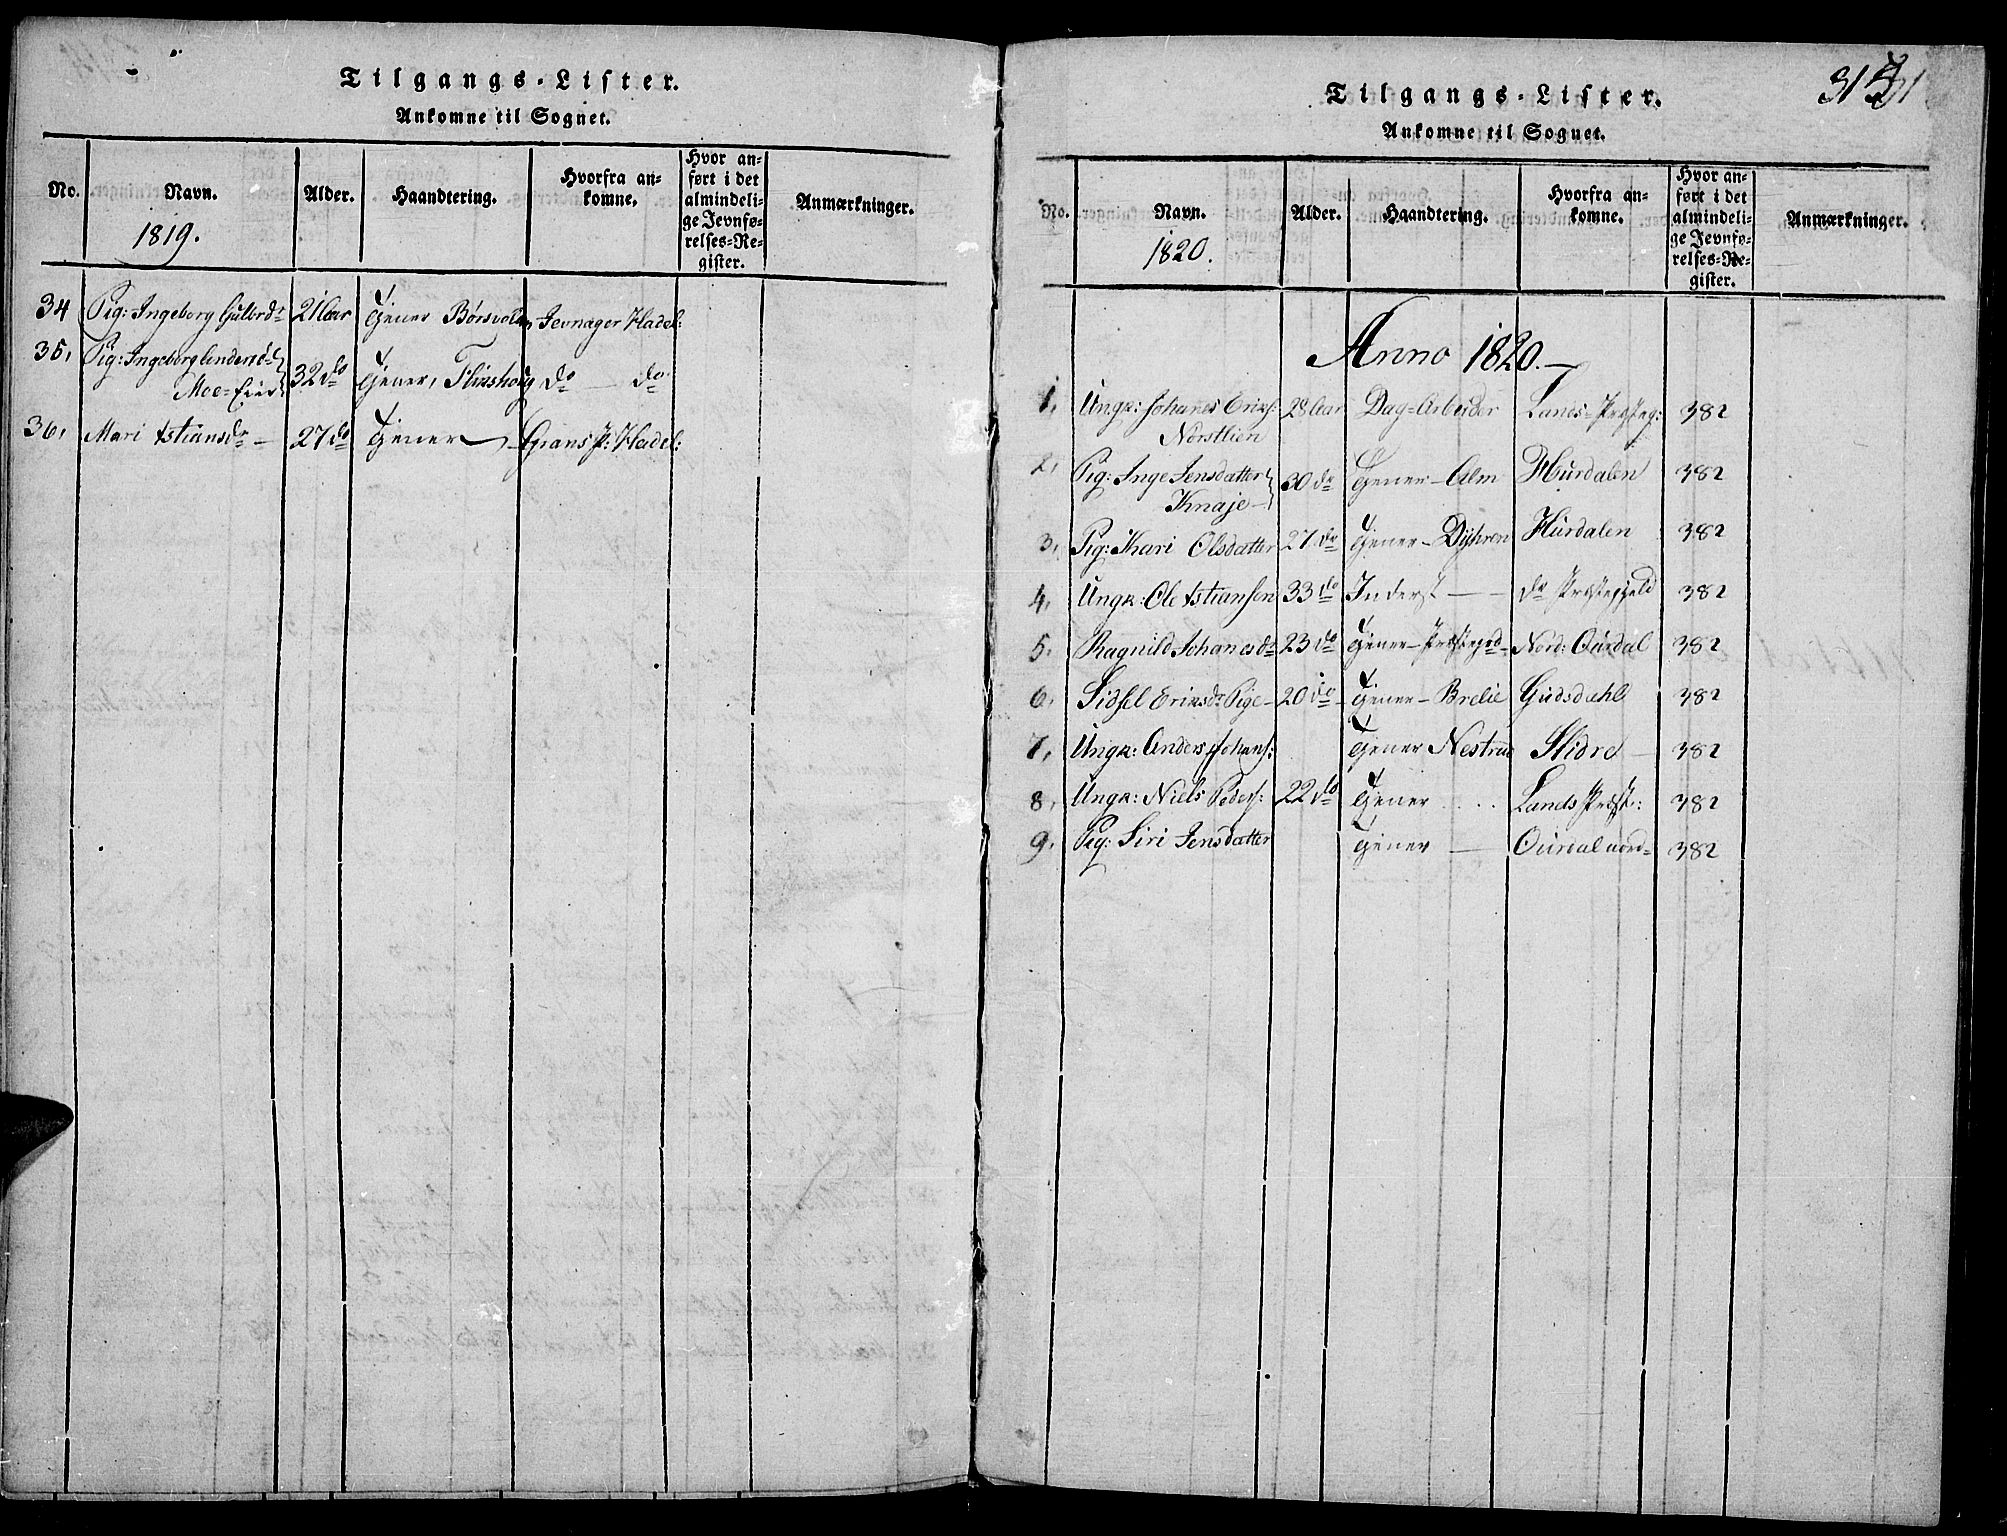 Tilgangs-Lister.
Ankomne til Sognet.
No.
Navn.
1819.
Alder.
Haandtering.
Hvorfra an-
komne.
Hvor an-
ført i det
almindeli-
ge Jevnfø-
relses-Re-
gister.
Anmærkninger.
34 Pig: Ingeborg Gulbrdr 21 Aar tjener Børsvolden Jevnager Hadel:
35, Pig: Ingeborg
Moe-Eier 32 do tjener, do — do
36, Mari Xstiansdr — 27 do tjener Grans P: Hadel:
Tilgangs-Lister.
Ankomne til Sognet.
No.
Navn.
1820.
Alder.
Haandtering.
Hvorfra an-
komne.
Hvor an-
ført i det
almindeli-
ge Jevnfø-
relses-Re-
gister.
Anmærkninger.
Anno 1820.—
1, Ungk: Johanes Eriks: 28 Aar Dag-Arbeider Lands-Præsteg: 382
Norstlien
2, Pig: Inge Jensdatter 30 dr tjener — Alm Hurdalen 382
Knaje —
3, Pig: Kari Olsdatter 27 dr tjener — Dyhren Hurdalen 382
4, Ungk: Ole Xstiansen 33 do Inderst — — dr Præstegjeld 382
5. Ragnild Johanesdr 23 do tjener — Præstegrd — Nord: Ourdal 382
6, Sidsel Eriksdr Pige — 20 do — tjener — Brelie Gudsdahl 382
7, Ungk: Anders Johans: tjener Nestrud Slidre — 382
8, Ungk: Niels Peders: 22 do tjener . . . . Lands Præst: 382
9, Pig: Siri Jensdatter tjener — Ourdal nord= 382